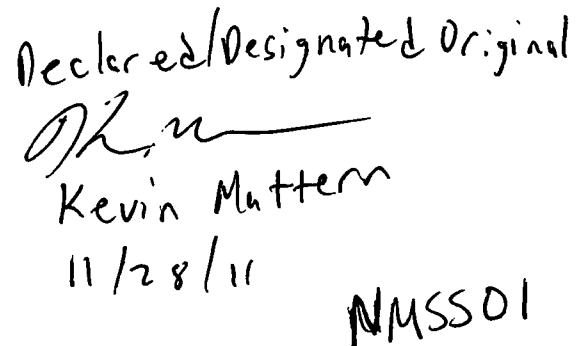 Declared/Designated Original
Kevin Mattern
11/28/11
NMSS01